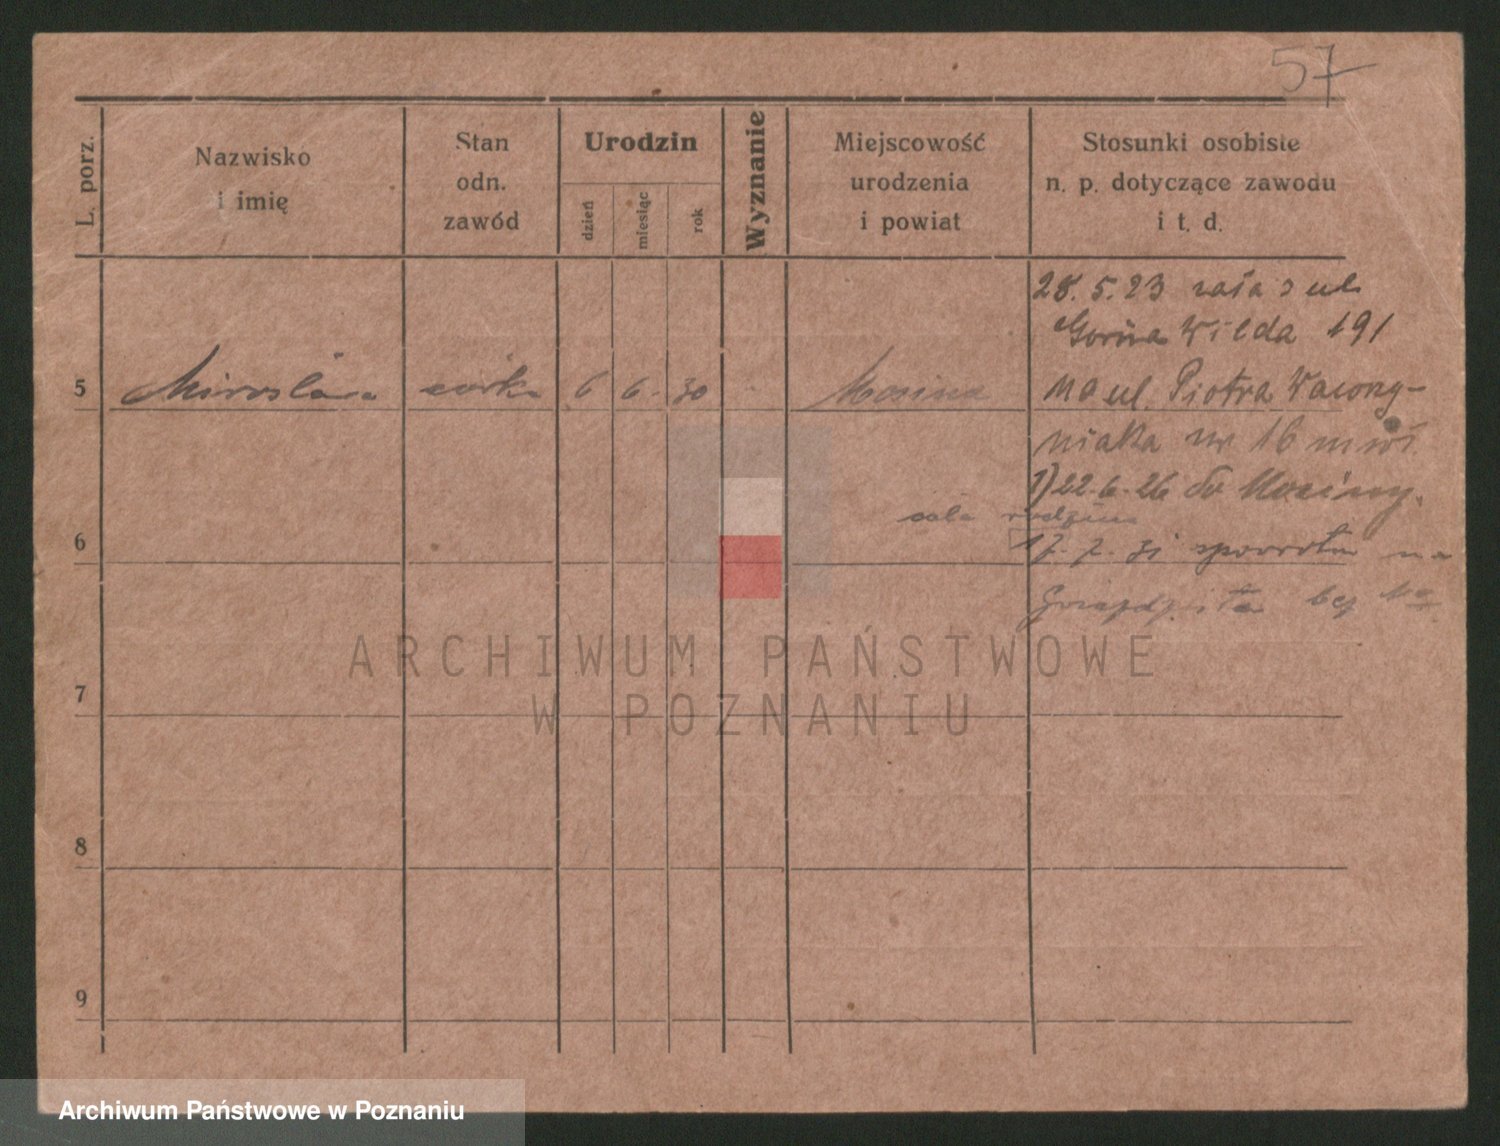 57
L. porz.
Nazwisko
i imię
Stan
odn.
zawód
Urodzin
dzień
miesiąc
rok
Wyznanie
Miejscowość
urodzenia
i powiat
Stosunki osobiste
n. p. dotyczące zawodu
i t. d.
28. 5. 23 ul.
Górna Wilda 191
5 Mirosława córka 6 6. 30 Mosina na ul. Piotra Wawrzy-
niaka nr 16
1) 22. 6. 26 do Mosiny.
cała rodzina
6 17. 7. 31 na
7
8
9
ARCHIWUM PAŃSTWOWE
W POZNANIU
Archiwum Państwowe w Poznaniu